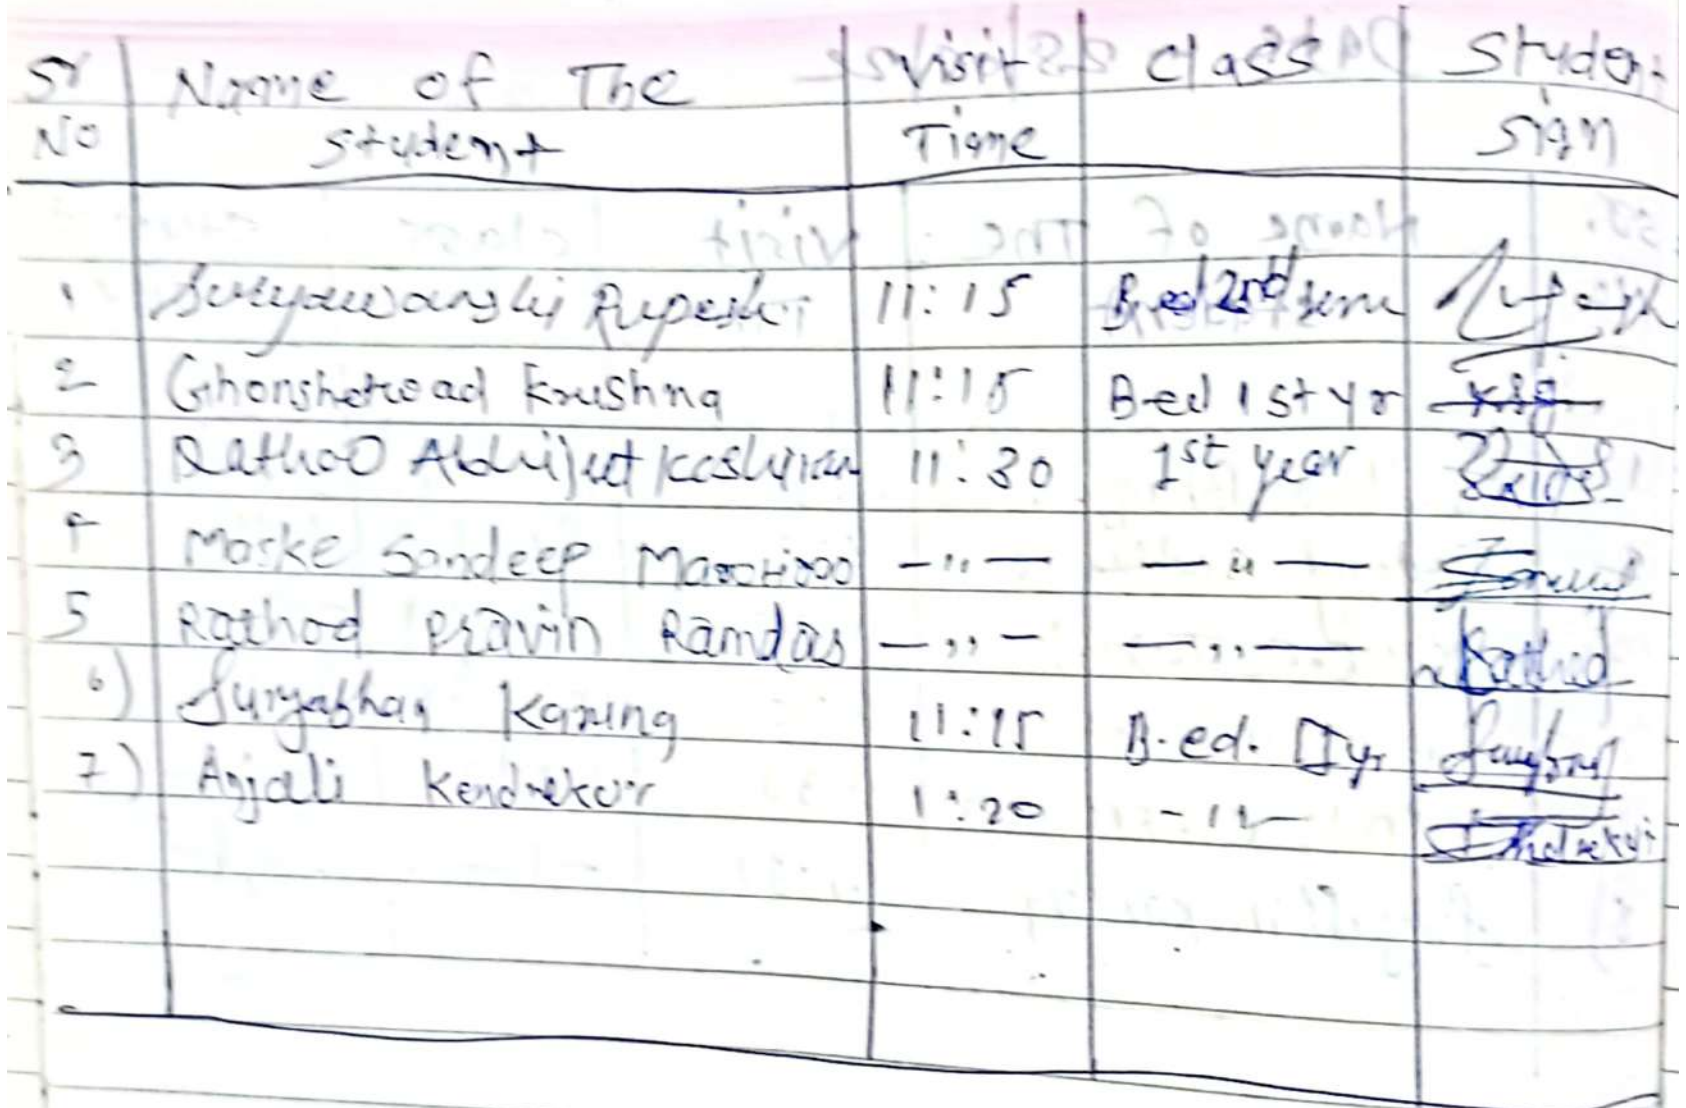 Sr Name of The Visit class Student
No Student Time Sign
1 Suryawanshi Rupesh 11:15 B.ed 2nd sem
2 Ghonshetwad Krushna 11:15 B.ed 1st yr
3 Rathod Abhijeet 11:30 1st year
4 Maske Sandeep —„— —„—
5 Rathod Pravin Ramdas —„— —„— Rathod
6) Suryabhan 11:15 B.ed. I yr
7) Anjali Kendrekar 1:20 —„—